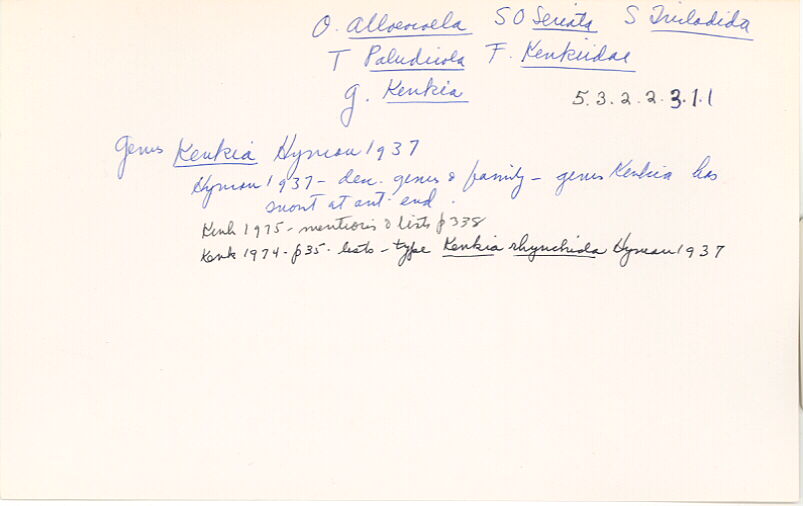 O. Alloeocoela SO Seriata S Tricladida
T Paludicola F. Kenkiidae
g. Kenkia
5.3.2.2.3.1.1
Genus Kenkia Hyman 1937
Hyman 1937 - den. genus & family - genus Kenkia has
snout at ant. end.
Kenk 1975 - mentions & lists p 338
Kenk 1974 - p35. lists - type Kenkia rhynchida Hyman 1937